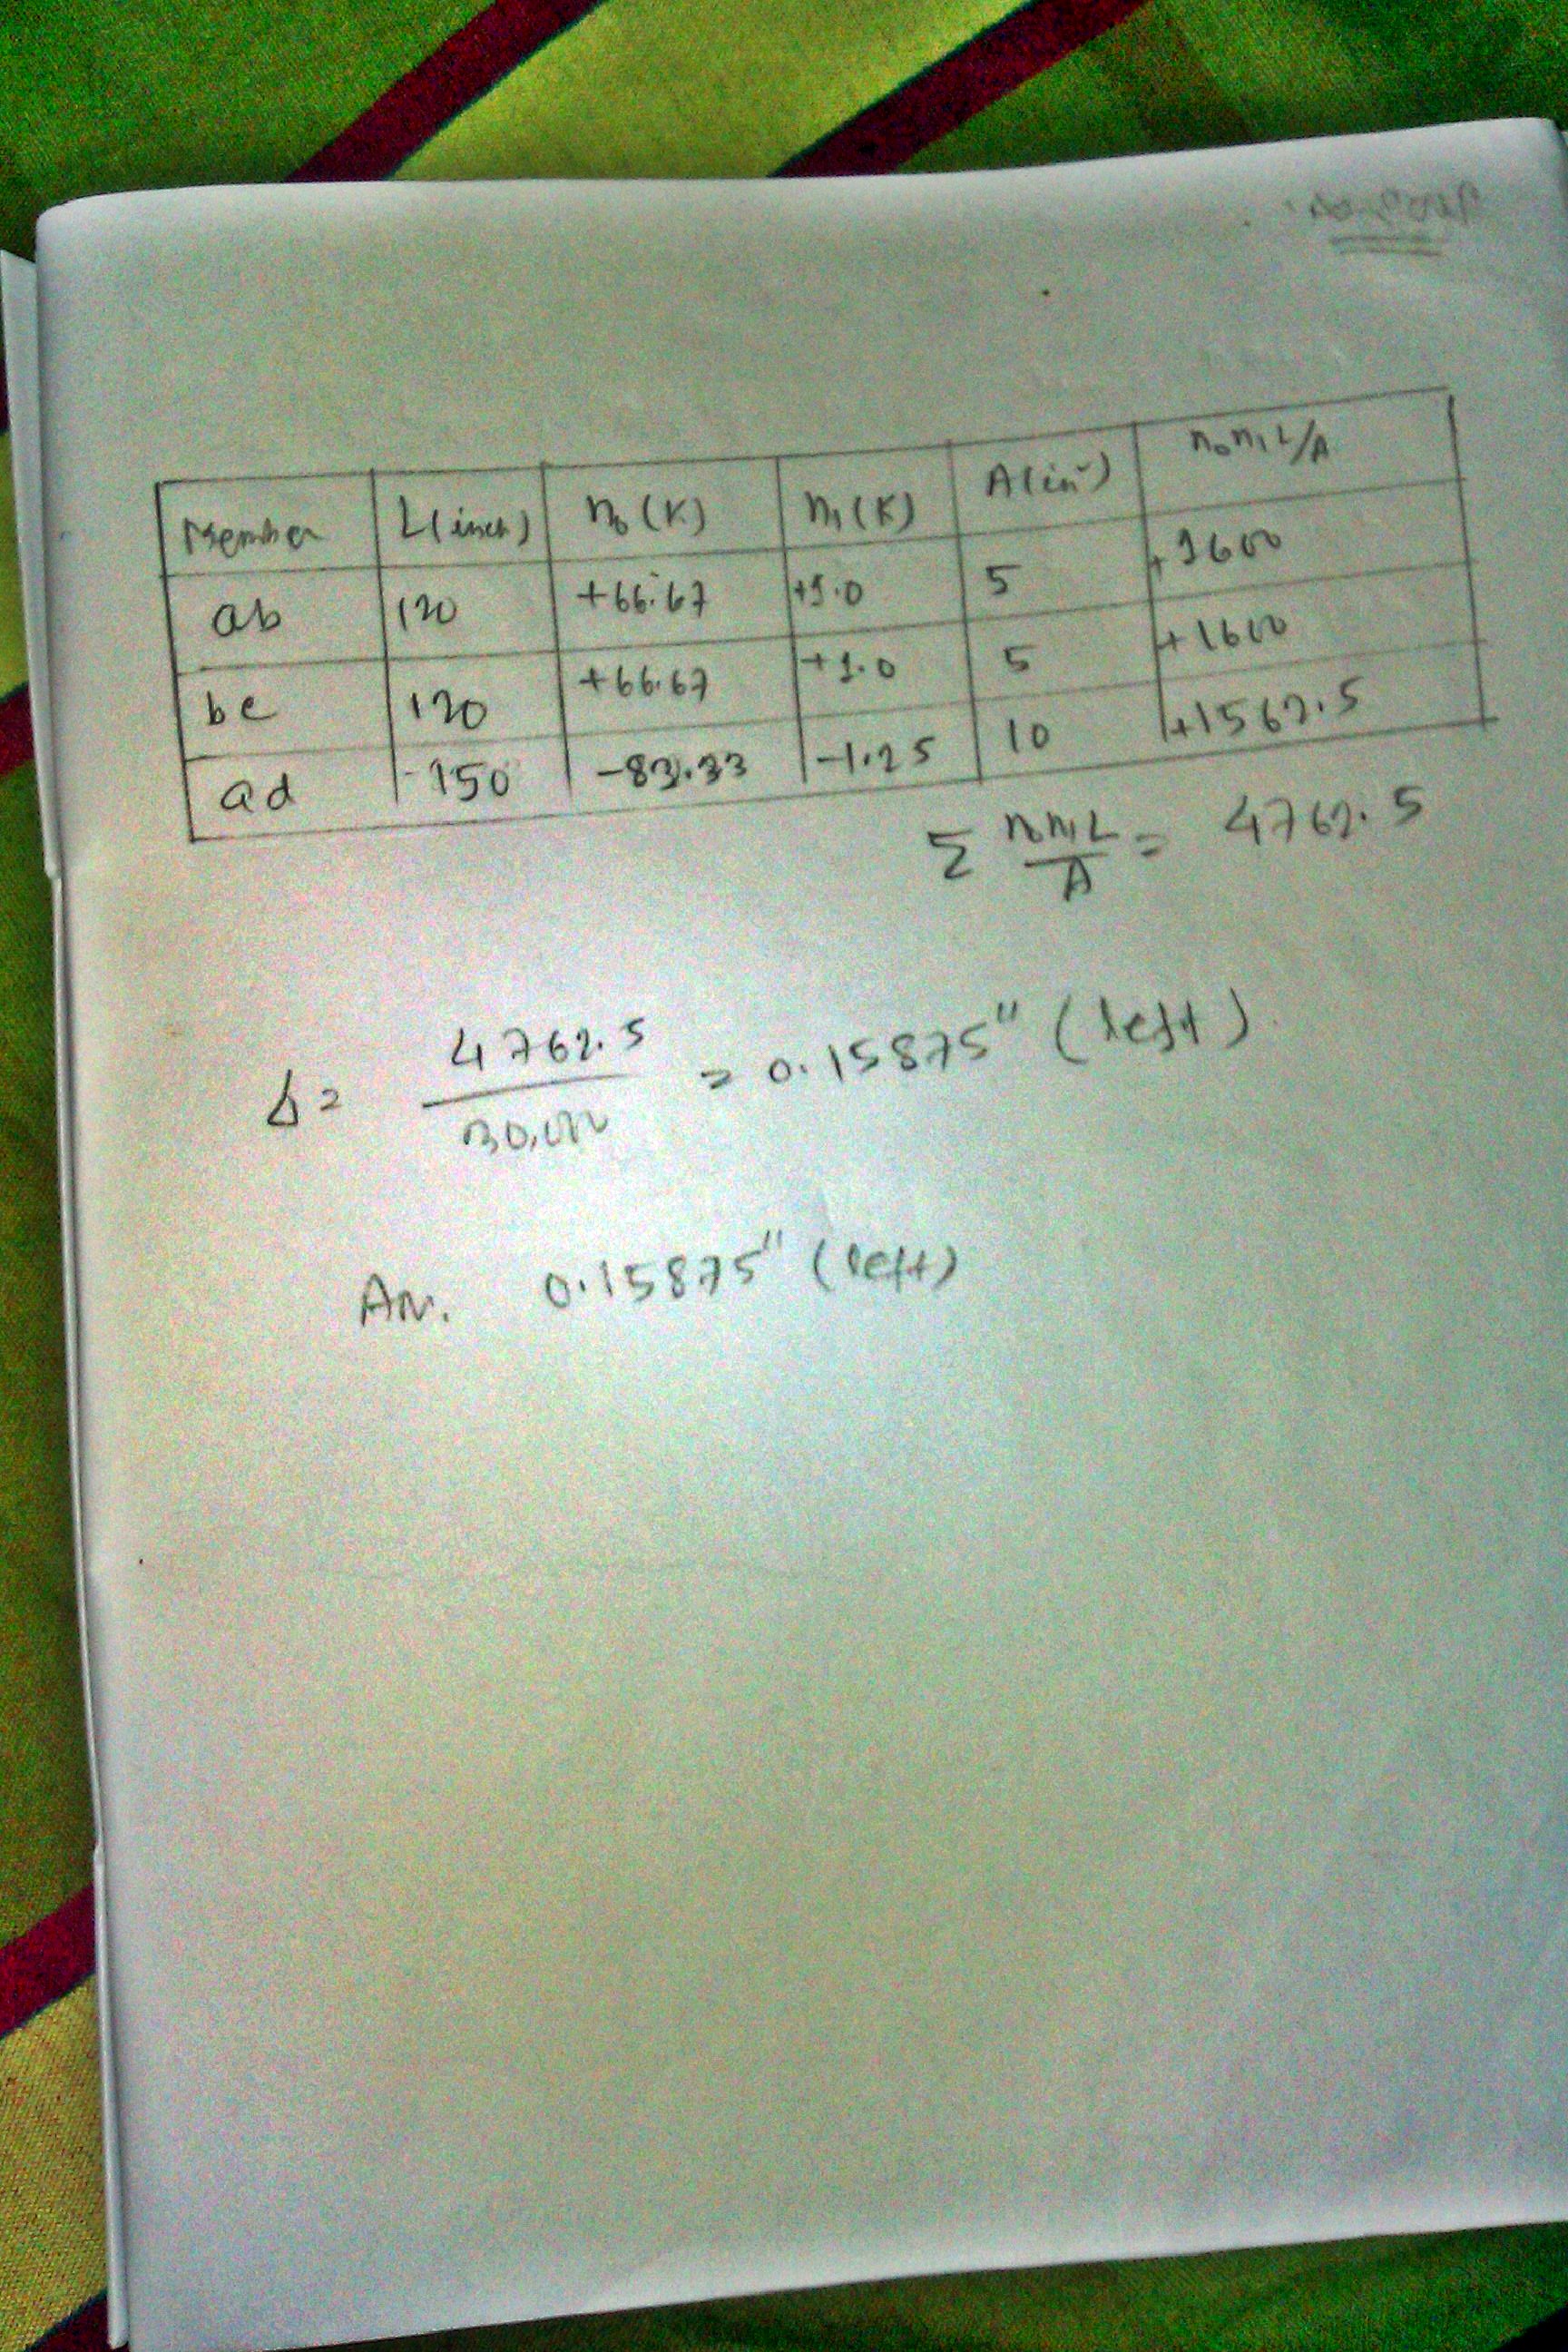 Member L(inch) n₀(K) n₁(K) A(in²) n₀n₁L/A
ab 120 +66.67 +1.0 5 +1600
bc 120 +66.67 +1.0 5 +1600
ad 150 -83.33 -1.25 10 +1562.5
Σ n₀n₁L/A = 4762.5
Δ = 4762.5/30,000 = 0.15875" (left)
An. 0.15875" (left)